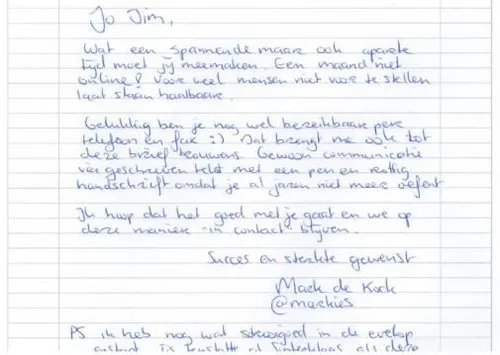 Jo Jim,
Wat een spannende maar ook aparte
tijd moet jij meemaken. Een maand niet
online? Voor veel mensen niet voor te stellen
laat staan haalbaar.
Gelukkig ben je nog wel bereikbaar per
telefoon en fax :) Dat brengt me ook tot
deze brief trouwens. Gewoon communicatie
via geschreven tekst met een pen en
handschrift omdat je al jaren niet meer oefent
Ik hoop dat het goed met je gaat en we op
deze manier "in contact" blijven.
Succes en sterkte gewenst
Mark de Kock
@markies
PS ik heb nog wat strooigoed in de
als deze